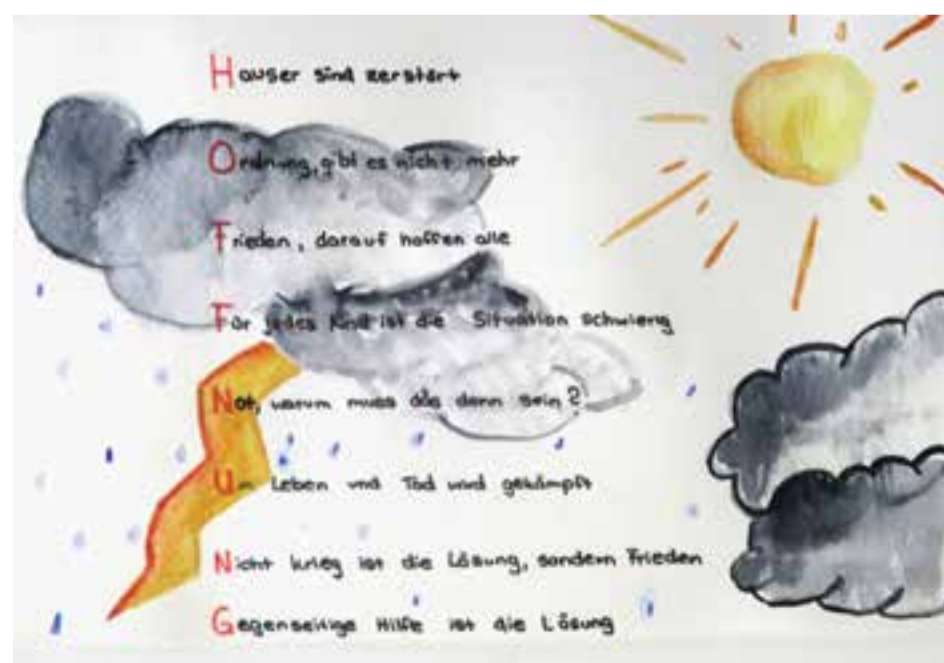 Häuser sind zerstört
Ordnung, gibt es nicht mehr
Frieden, darauf hoffen alle
Für jedes Kind ist die Situation schwierig
Not, warum muss das denn sein?
Um Leben und Tod wird gekämpft
Nicht krieg ist die Lösung, sondern Frieden
Gegenseitige Hilfe ist die Lösung